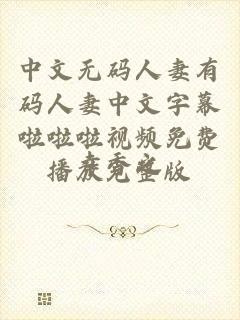 中文无码人妻有
码人妻中文字幕
啦啦啦视频免费
播放完整版